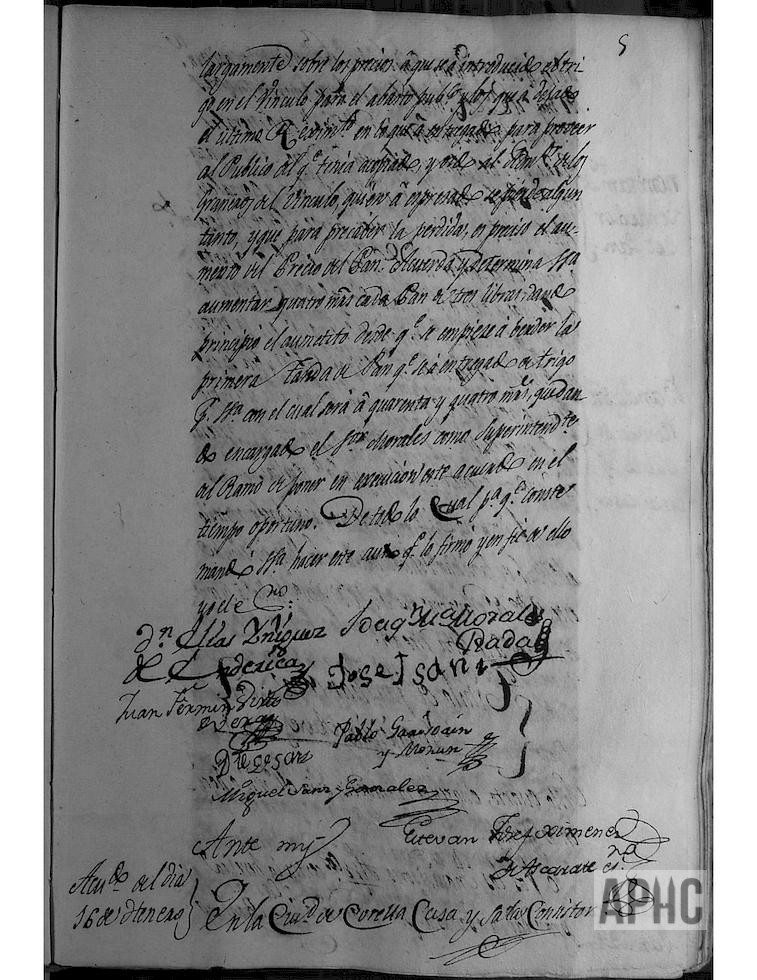 5
largamente sobre los precios â que se â introducido el tri-
go en el Vinculo para el abasto pubco y los que â dejado
el ultimo en lo que â entregado para proveer
al Publico del qe tenia acopiado, y oido al de los
Graneros del Vinculo, quien â expresado se pierde algun
tanto, y que para precaber la perdida, es preciso el au-
mento del Precio del Pan: Acuerda y determina Sa
aumentar quatro mrs cada Pan de tres libras, dando
principio el aumento desde qe se empieze a bender la
primera Tanda de Pan qe se â entregado de trigo
pr Sa con el cual será â quarenta y quatro mrs, quedan-
do encargado el Sor Morales como Superintendte
del Ramo de poner en execucion este acuerdo en el
tiempo oportuno. De todo lo Cual pa qe conste
mandó Sa hacer este auto qe lo firmo y en fee de ello
yo el Esno:
Dn Elias Yñiguez Morales
de Rada
Jose Sanz
Juan Fermin Virto
de Vera
Pablo Garbain
y Monun
Dte Sesma
Miguel Sanz y Gonzalez
Ante my
Estevan Josef Ximenez
de Azcarate esno
Acudo del dia
16 de Henero
En la Ciud de Corella Casa y Sala Consistor
APHC